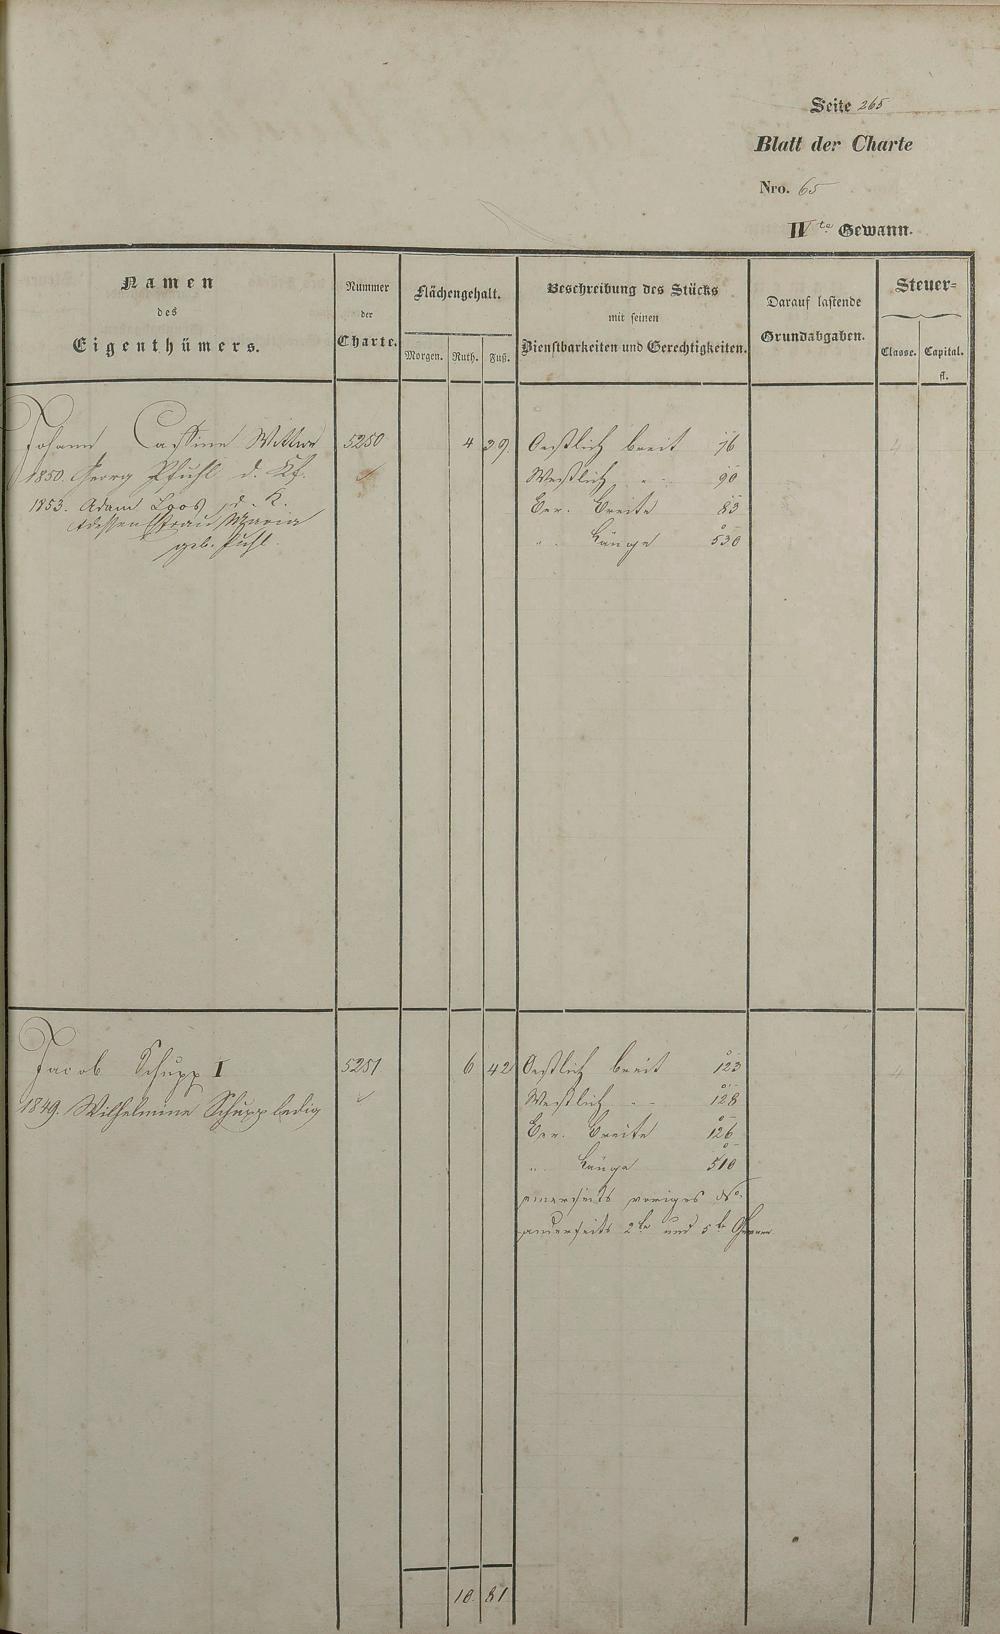 Seite 265
Blatt der Charte
Nro. 65
IV te Gewann.
Namen
des
Eigenthümers.
Nummer
der
Charte.
Flächengehalt.
Morgen. Ruth. Fuß.
Beschreibung des Stücks
mit seinen
Dienstbarkeiten und Gerechtigkeiten.
Darauf lastende
Grundabgaben.
Steuer=
Classe. Capital.
fl.
Johann Cassine Wittwe 5250 4 39. Oestlich breit 76
1850. Georg Pfuhl d. Kf. Westlich " - 90
1853. Adam Loos, d. K. Ver. Breite 83
& dessen Ehefrau Maria
geb. Puhl. " Länge 530
Jacob Schupp I 5251 6 42 Oestlich breit 123 4
1849. Wilhelmine Schupp ledig Westlich - - 128
Ver. Breite 126
" Länge 510
einerseits voriges No.
anderseits 2te und 5te Gewann
10. 81